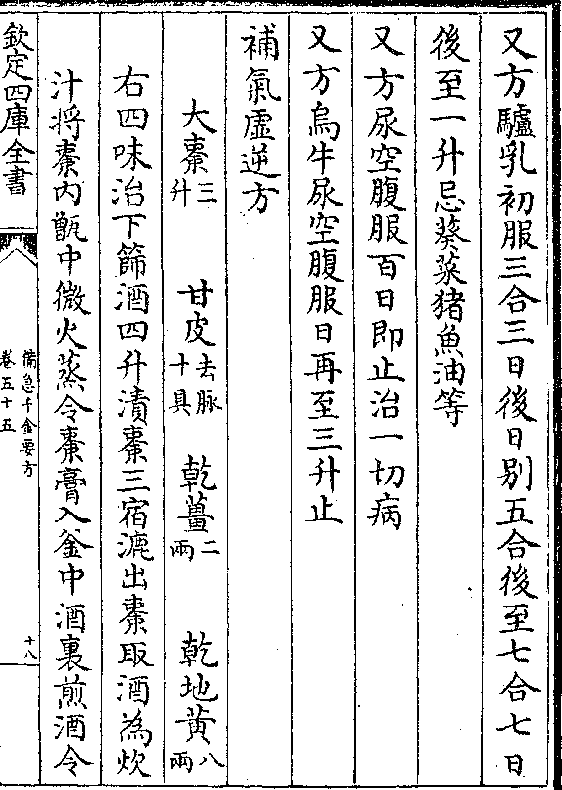 又方驢乳初服三合三日後日别五合後至七合七日
後至一升忌葵菜猪魚油等
又方尿空腹服百日即止治一切病
又方烏牛尿空腹服日再至三升止
補氣虚逆方
大棗三升 甘皮去脉十具 乾薑二兩 乾地黄八兩
右四味治下篩酒四升漬棗三宿漉出棗取酒為炊
汁將棗内甑中微火蒸令棗膏入釜中酒裏煎酒令
欽定四庫全書
備急千金要方
卷五十五
十八